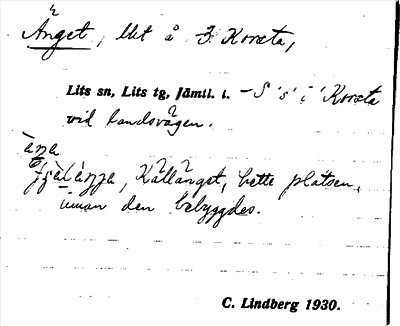 Änget, lht å 3 Korsta,
Lits sn, Lits tg, Jämtl. l. – S 's' i 'Korsta
vid landsvägen.
Källänget, hette platsen,
innan den bebyggdes.
C. Lindberg 1930.